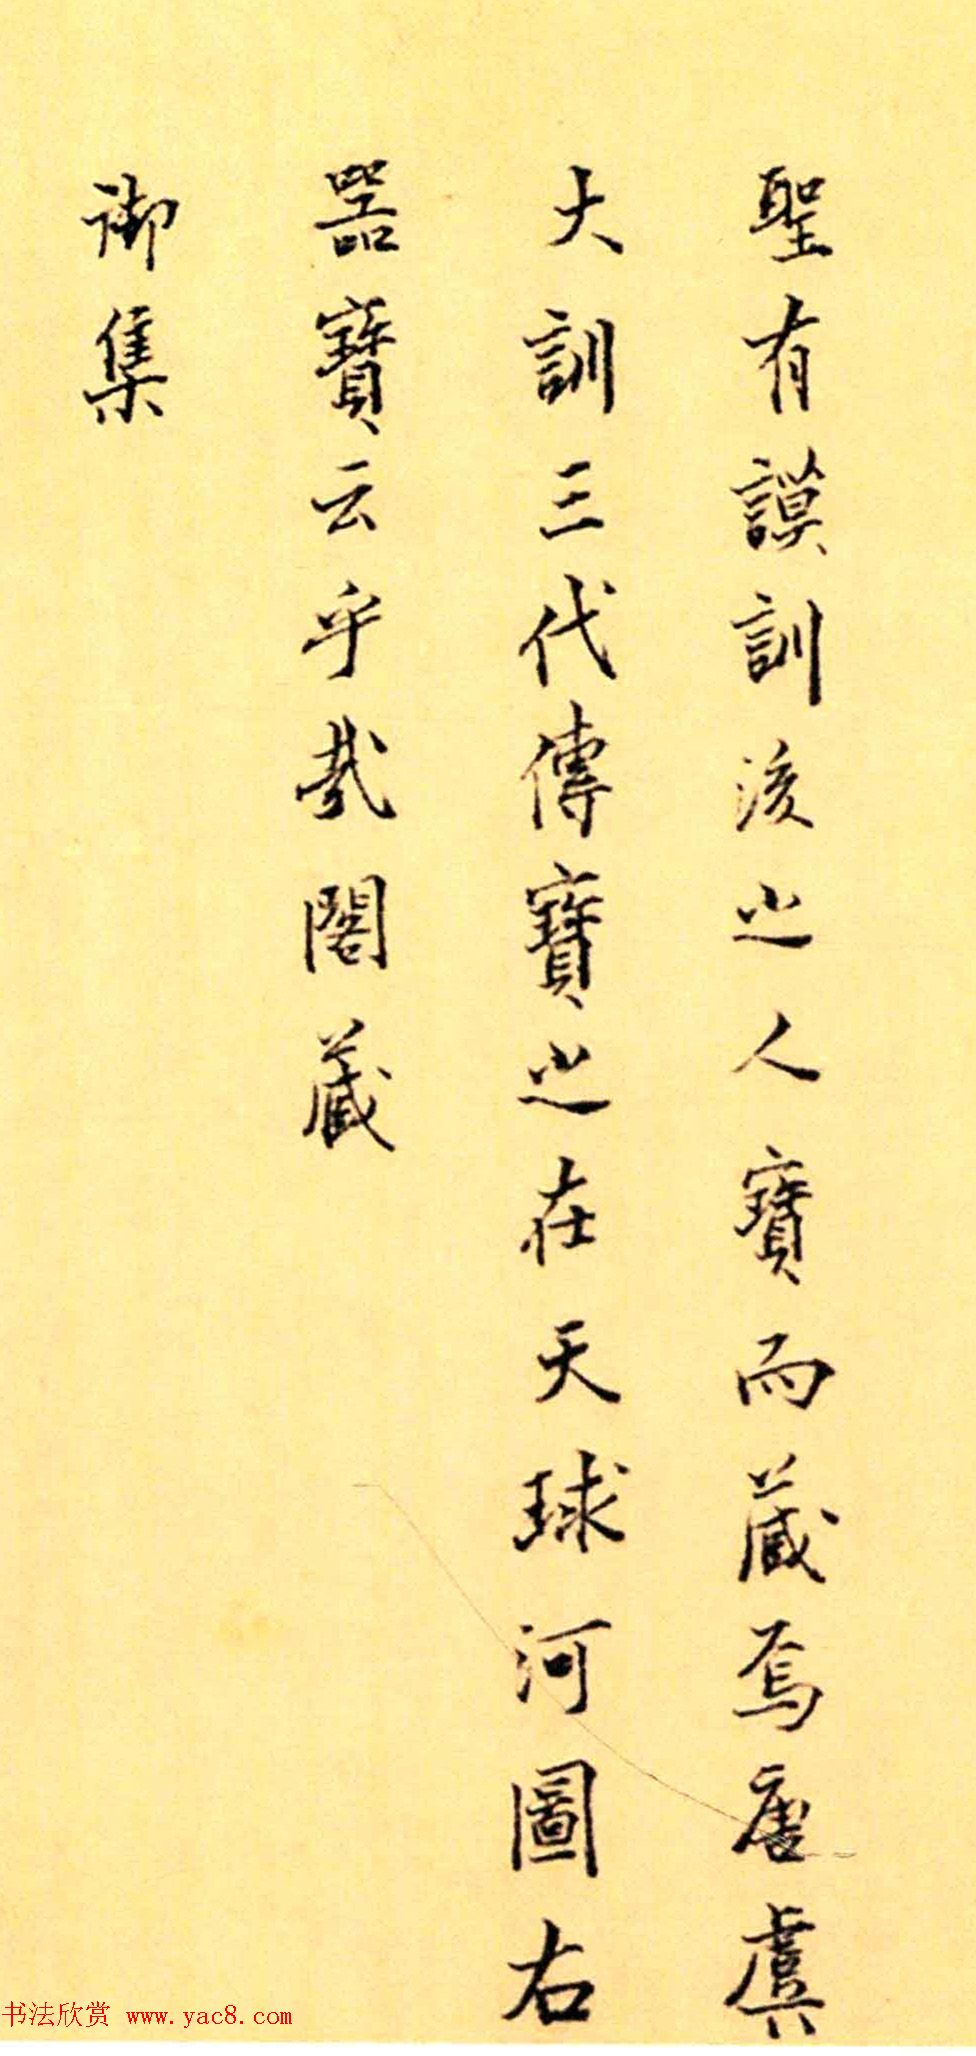 聖有謨訓後之人寶而藏焉唐虞
大訓三代傳寶之在天球河圖右
器寶云乎哉閣藏
御集
书法欣赏 www.yac8.com